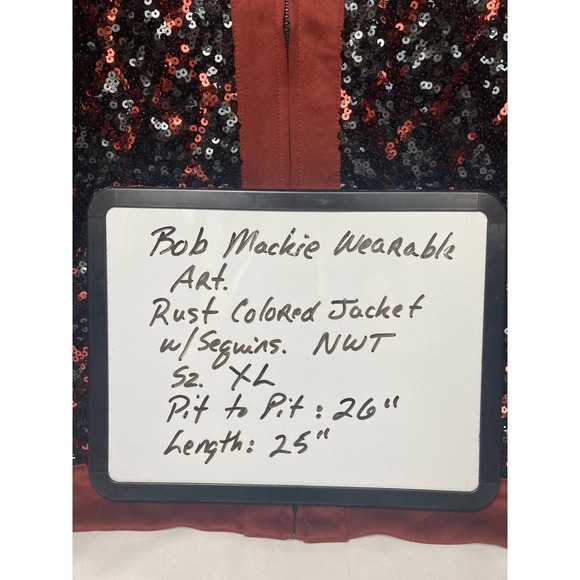 Bob Mackie Wearable
Art.
Rust Colored Jacket
w/Sequins. NWT
Sz. XL
Pit to Pit: 26"
Length: 25"